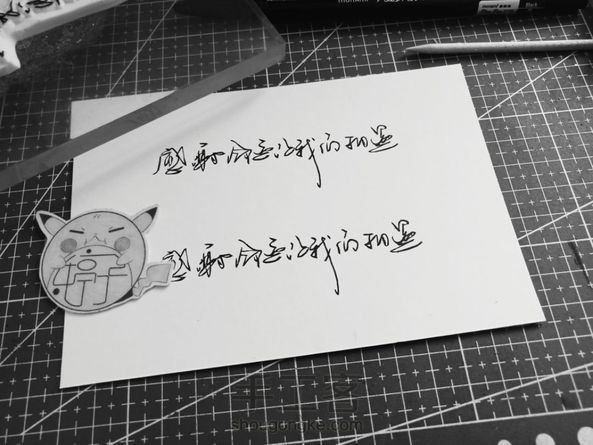 感谢命运让我们相遇
感谢命运让我们相遇
手工客
shougongke.com